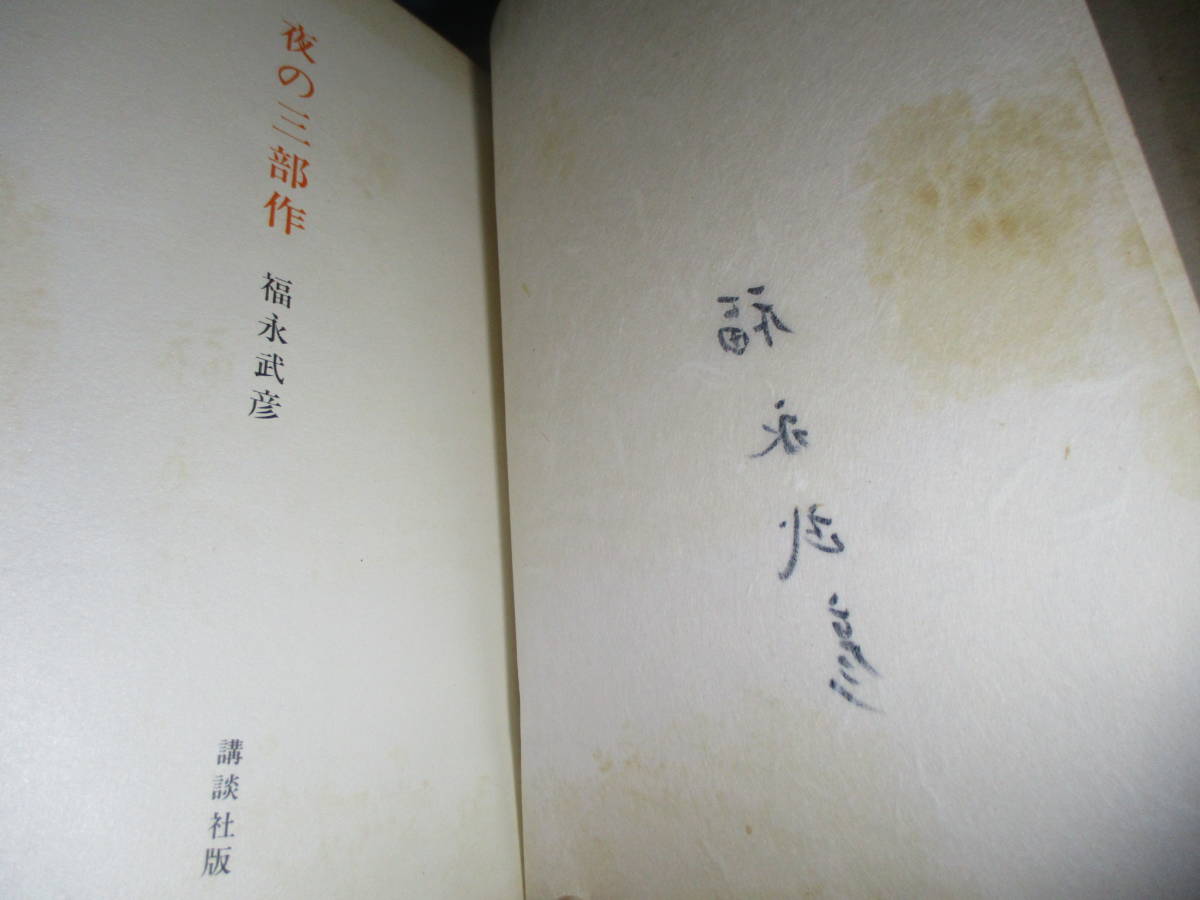 福永武彦
夜の三部作
福永武彦
講談社版